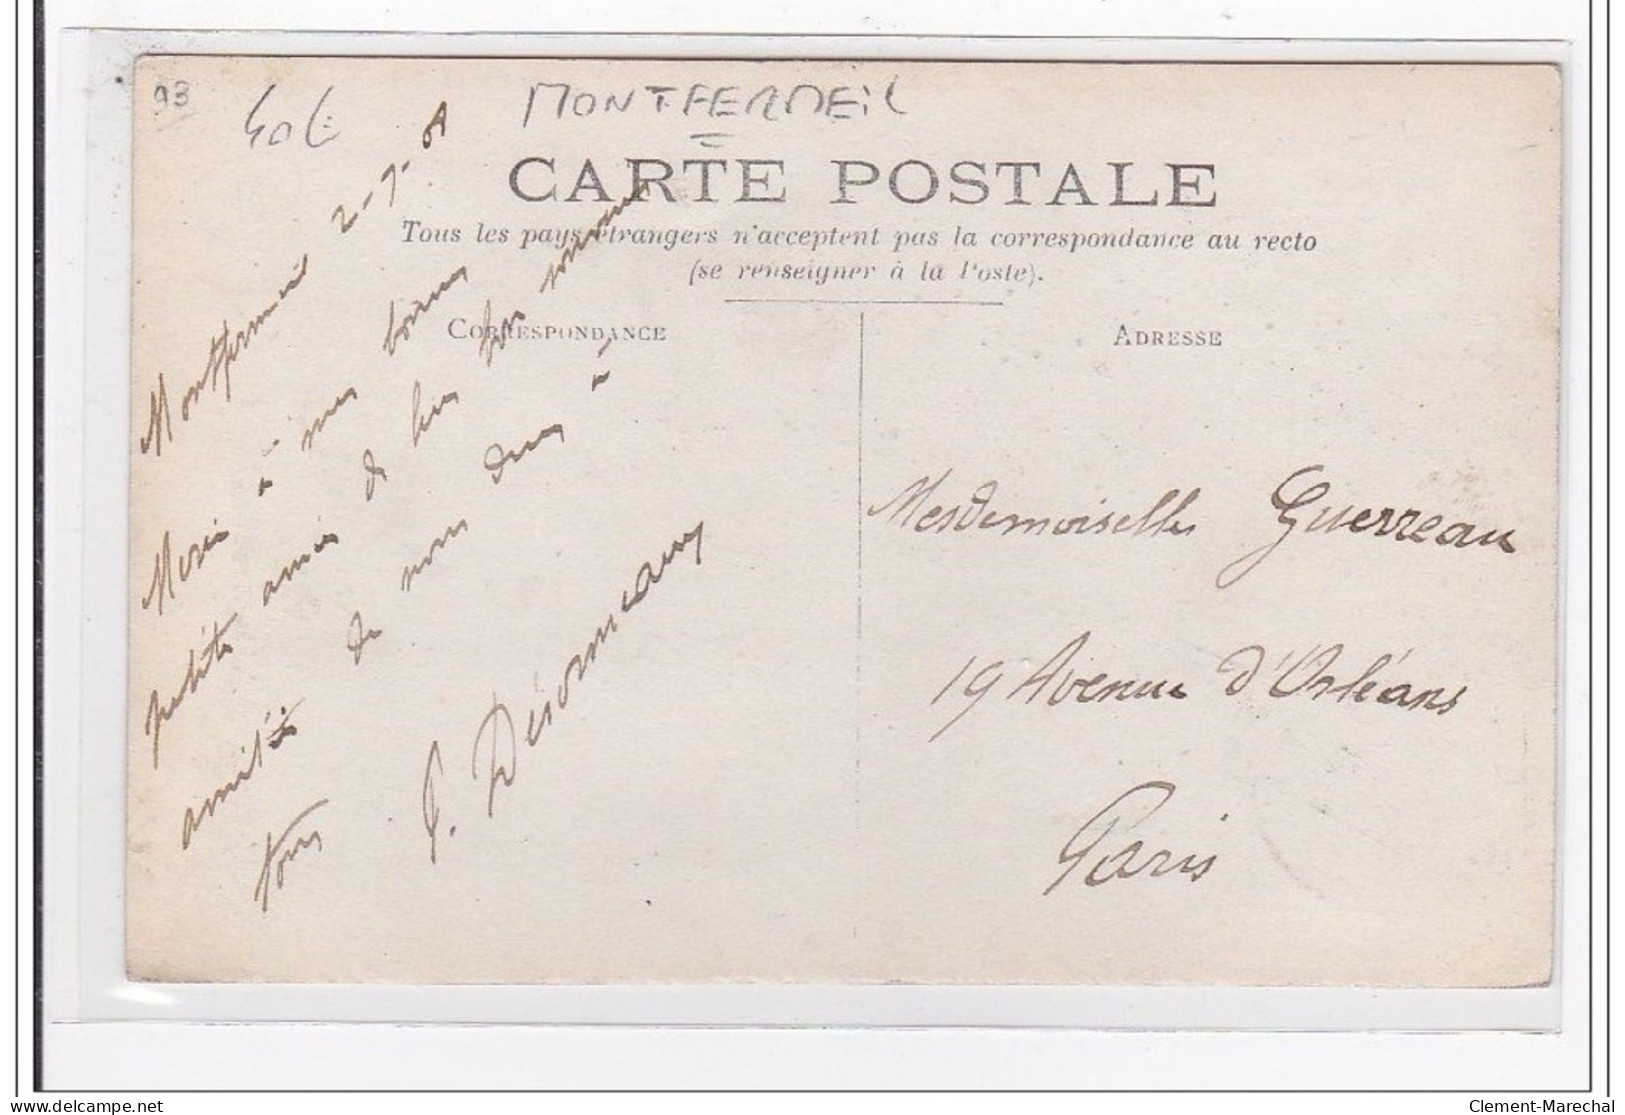 93
40€
MONTFERMEIL
CARTE POSTALE
Tous les pays étrangers n'acceptent pas la correspondance au recto
(se renseigner à la Poste).
CORRESPONDANCE
ADRESSE
Montfermeil 2-7-
Merci à mes bonnes
petites amies de leur bon souvenir
amitiés de nous deux à
tous
P. Desormeaux
Mesdemoiselles Guerreau
19 Avenue d'Orléans
Paris
Clement-Marechal